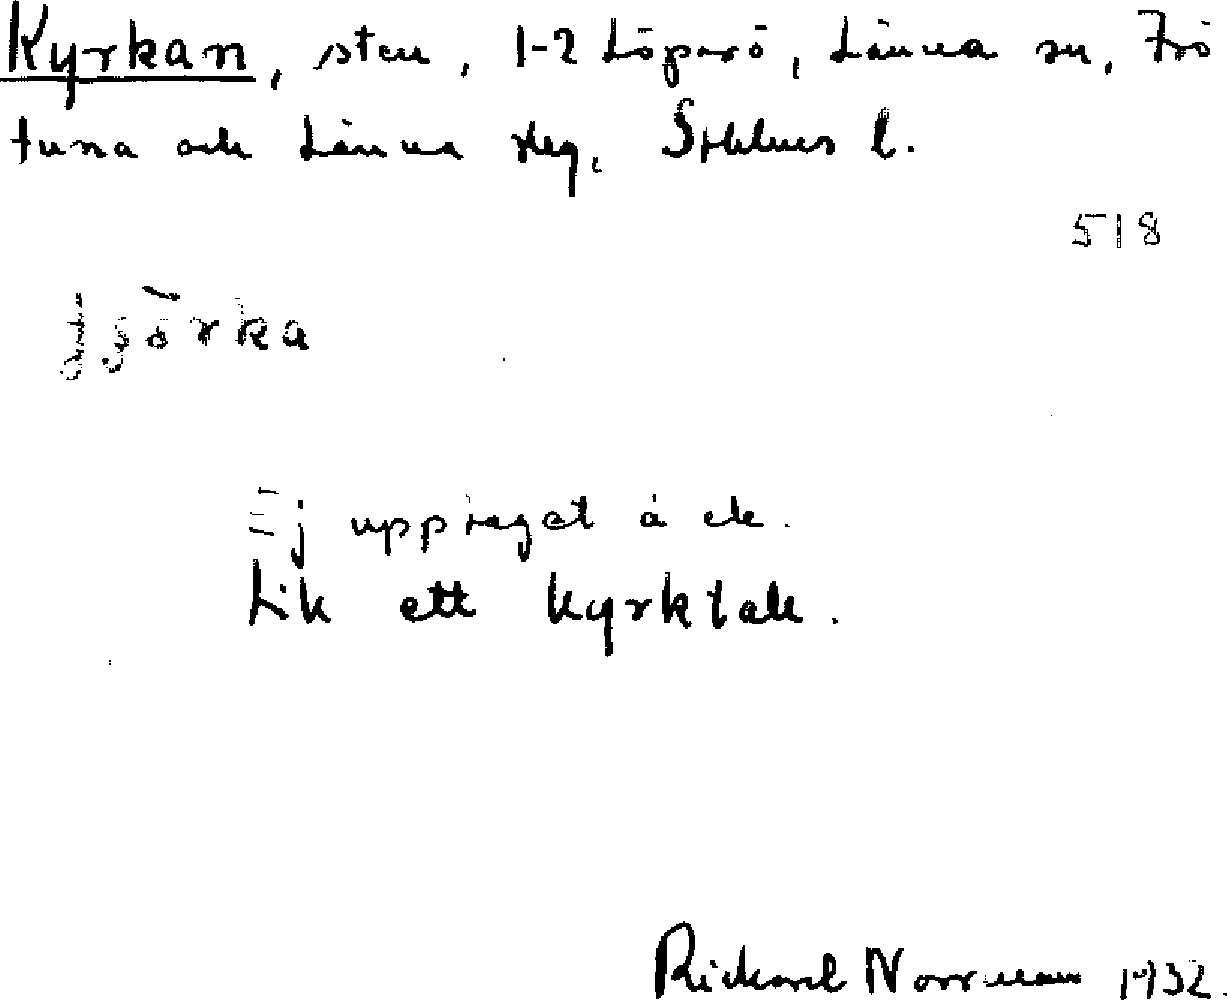 Kyrkan, sten, 1-2 Löparö, Länna sn, Frö
tuna och Länna skg, Sthlms l.
518
Ej upptaget å ek.
Lik ett kyrktak.
Rickard Norrman 1932.